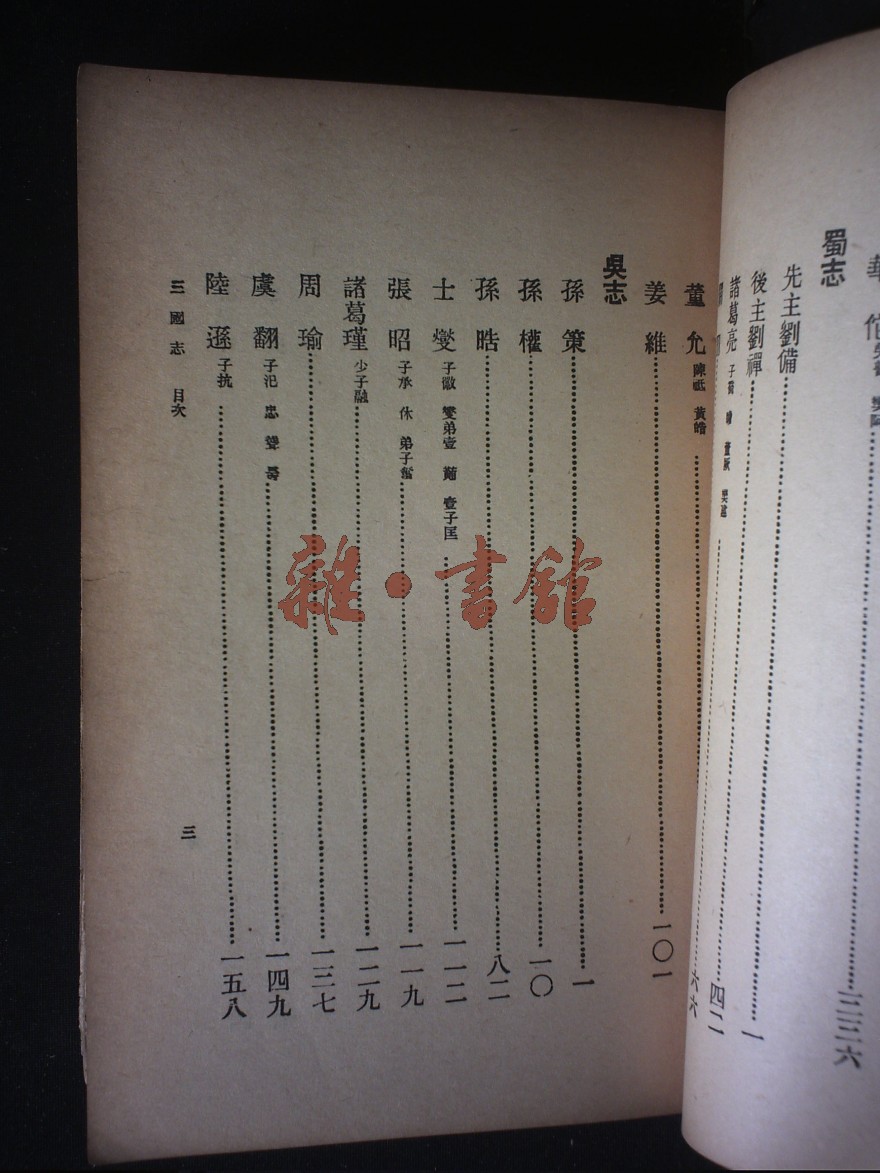 蜀志
先主劉備……一
後主劉禪
諸葛亮
董允 陳祗 黃皓
姜維……一〇一
吳志
孫策……一
孫權……一〇
孫晧……八二
士燮 子徽 燮弟壹 䵋 壹子匡……一一二
張昭 子承 休 弟子奮……一一九
諸葛瑾 少子融……一二九
周瑜……一三七
虞翻 子汜 忠 聳 昺……一四九
陸遜 子抗……一五八
三國志 目次
三
雜·書館